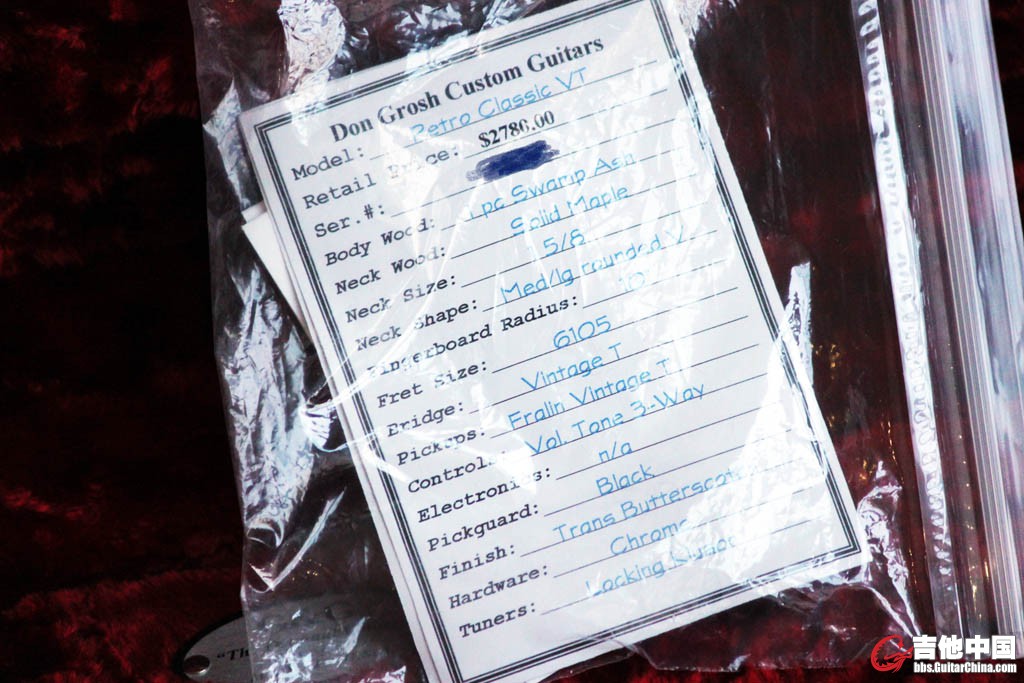 Don Grosh Custom Guitars
Model: Retro Classic VT
Retail Price: $2780.00
Ser.#:
Body Wood: 1 pc Swamp Ash
Neck Wood: Solid Maple
Neck Size: 5/8
Neck Shape: Med/lg rounded V
Fingerboard Radius: 10"
Fret Size: 6105
Bridge: Vintage T
Pickups: Fralin Vintage T
Controls: Vol. Tone 3-Way
Electronics: n/a
Pickguard: Black
Finish: Trans Butterscotch
Hardware: Chrome
Tuners: Locking
"Th
吉他中国
bbs.GuitarChina.com